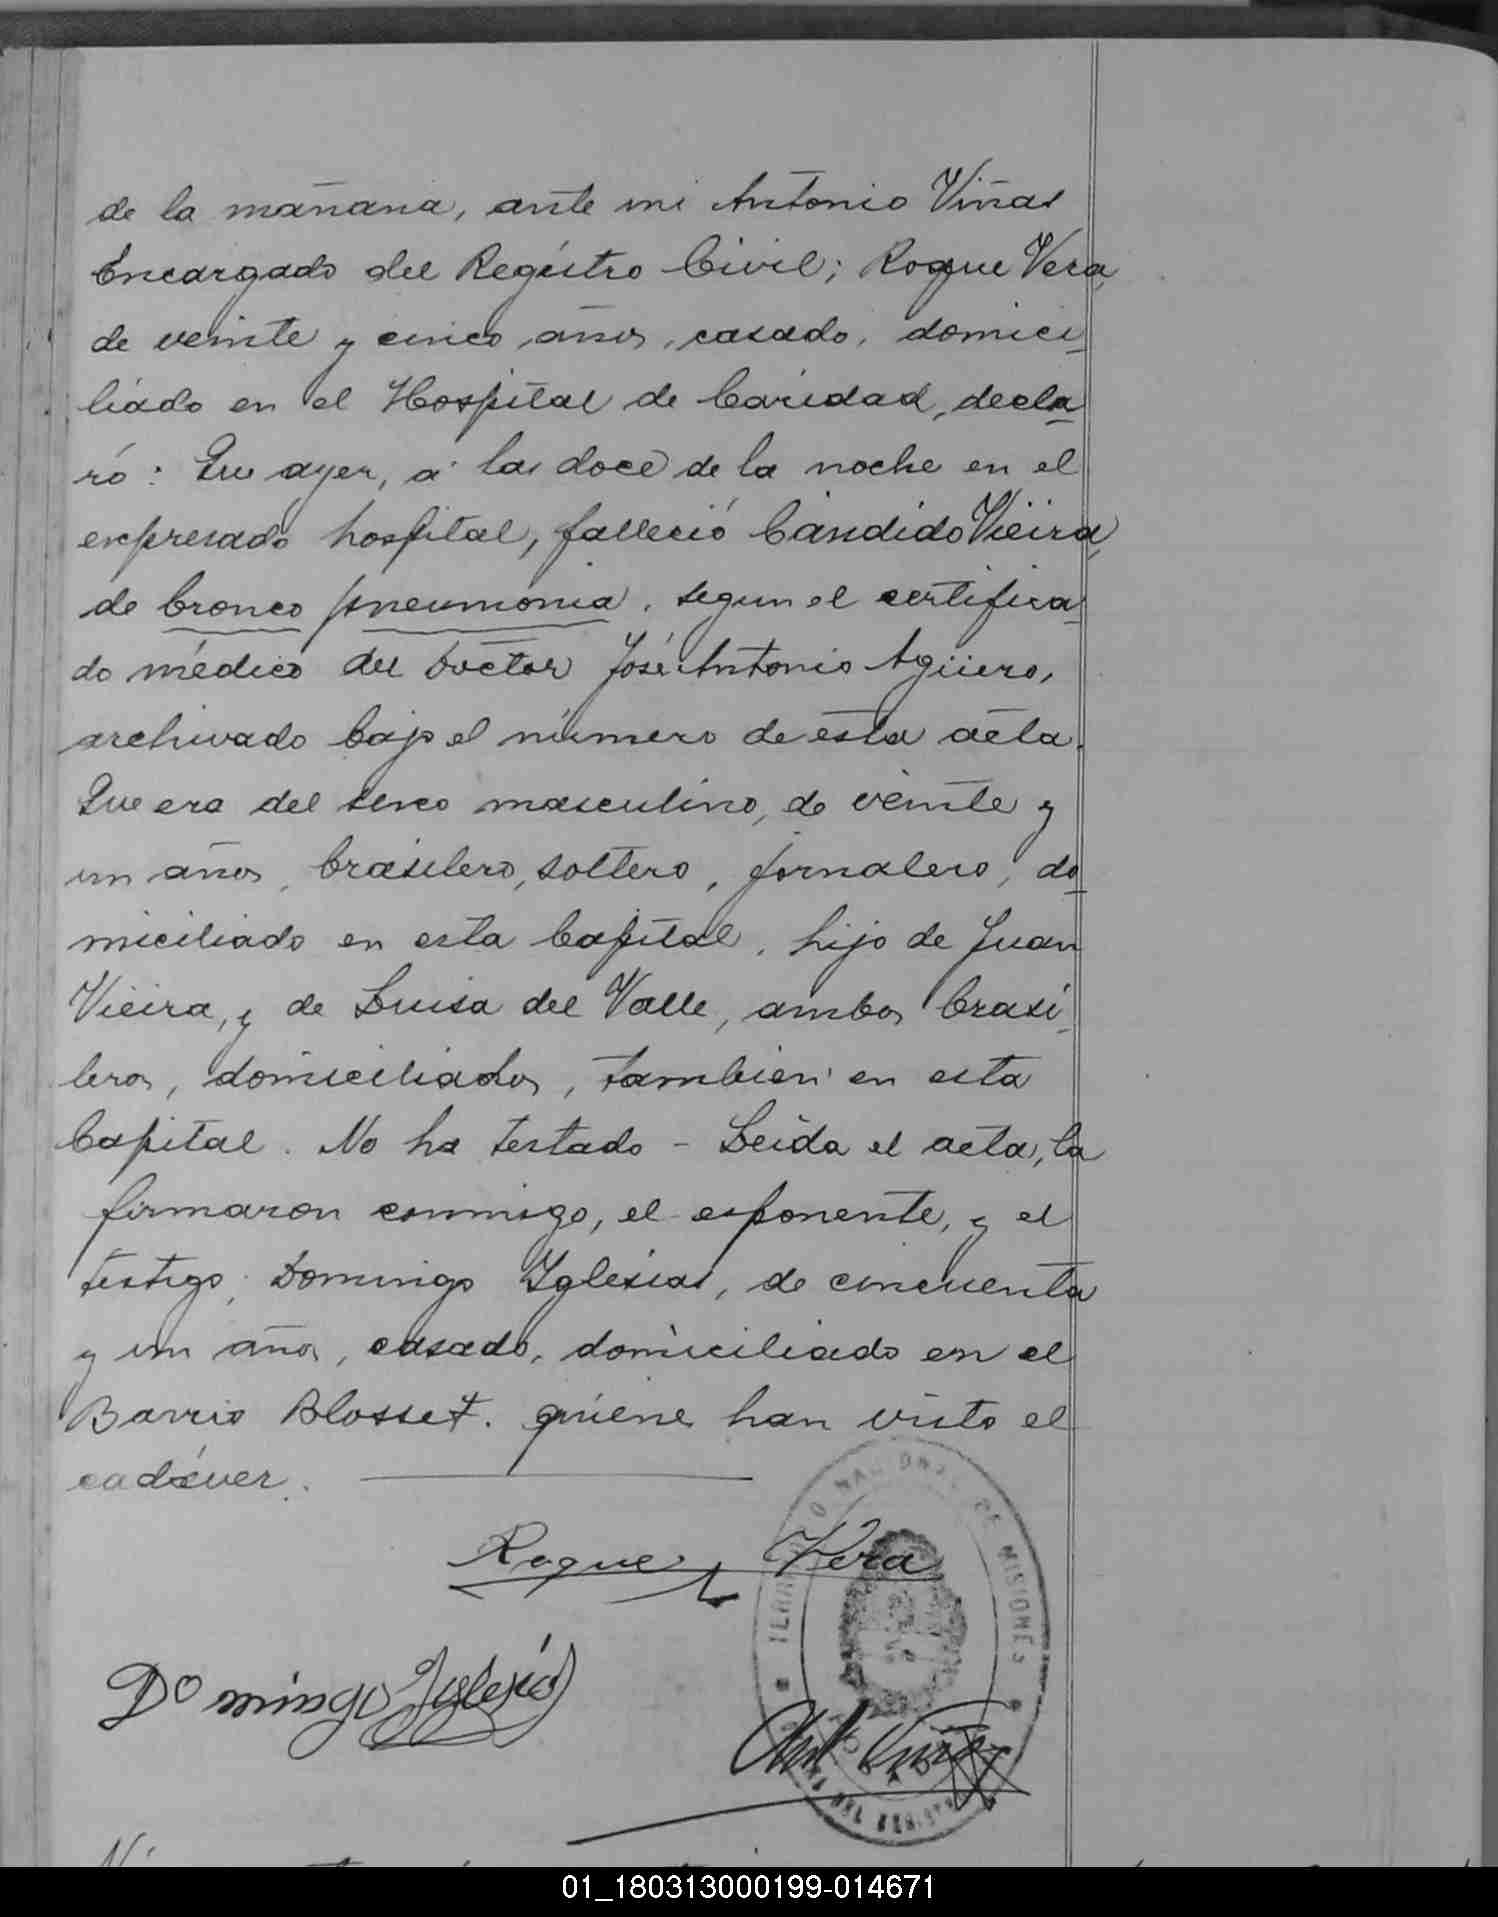 de la mañana, ante mi Antonio Viñas
Encargado del Registro Civil; Roque Vera,
de veinte y cinco años, casado, domici
liado en el Hospital de Caridad, decla
ró: Que ayer, á las doce de la noche en el
expresado hospital, falleció Cándido Vieira,
de bronco pneumonia, segun el certifica
do médico del Doctor José Antonio Agüero,
archivado bajo el número de esta acta.
Que era del sexo masculino, de veinte y
un años, brasilero, soltero, jornalero, do
miciliado en esta Capital, hijo de Juan
Vieira, y de Luisa del Valle, ambos brasi
leros, domiciliados, tambien en esta
Capital. No ha testado - Leida el acta, la
firmaron conmigo, el exponente, y el
testigo, Domingo Iglesias, de cincuenta
y un años, casado, domiciliado en el
Barrio Blosset. quiene han visto el
cadáver.
Roque Vera
TERRITORIO NACIONAL DE MISIONES
Domingo Iglesias
Ant Viñas
01_180313000199-014671